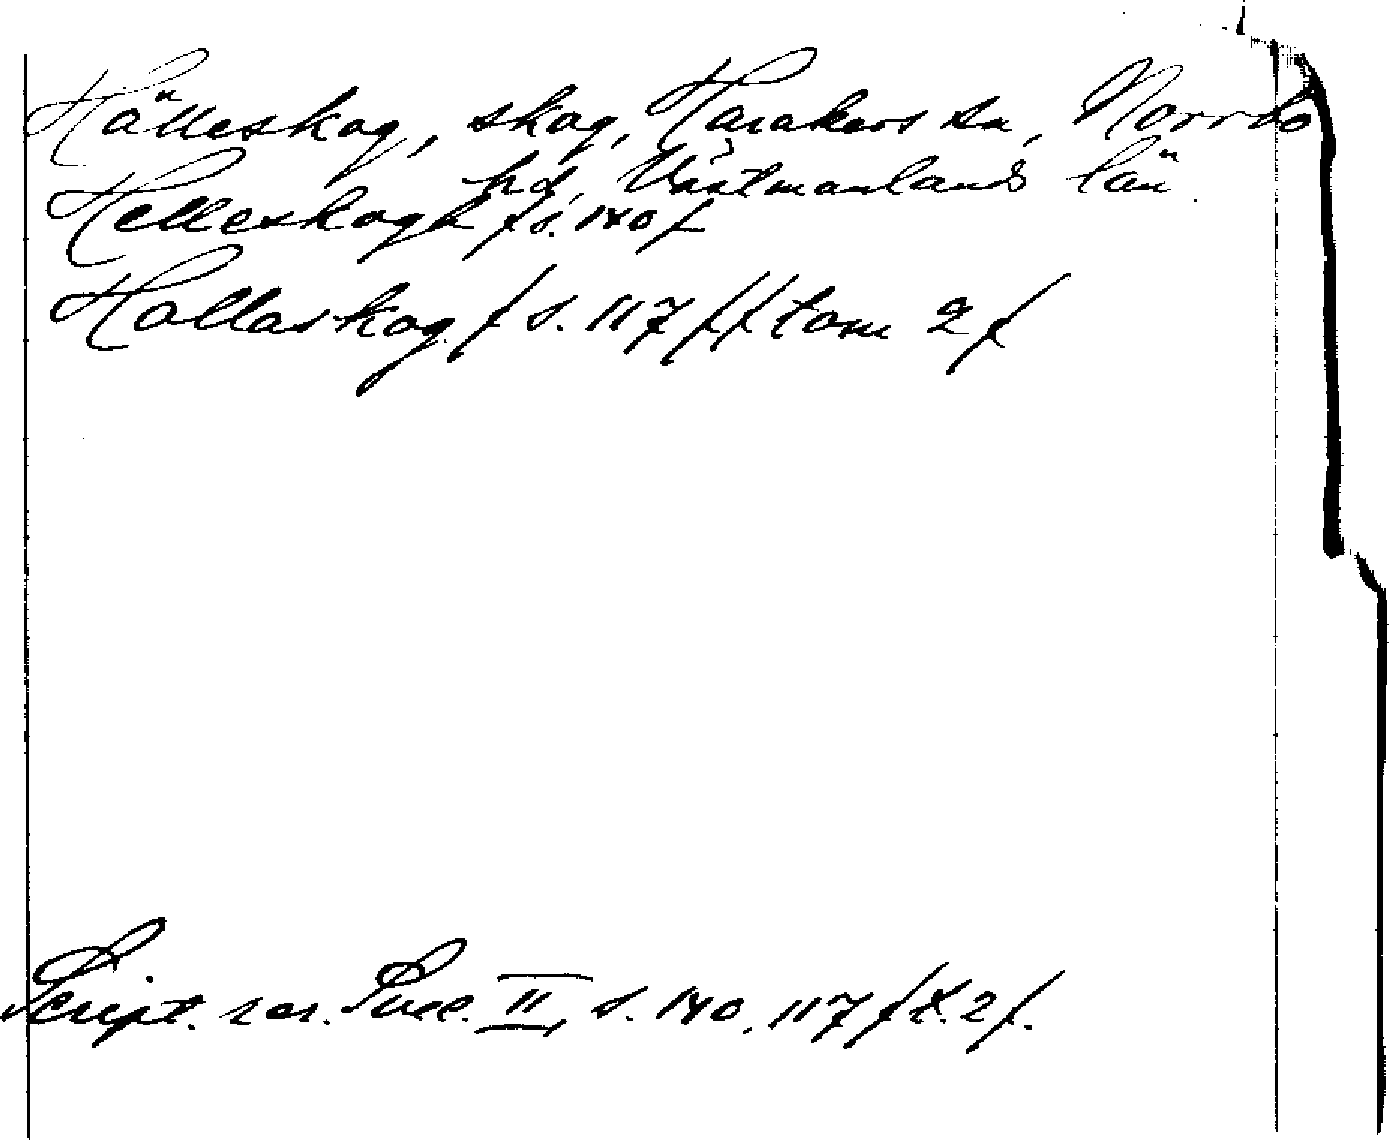 Hälleskog, skog, Harakers sn, Norrbo
hd, Västmanlands län
Helleskogh /s. 140/
Hallaskog /s. 117/ /tom 2/
Script. rer. Svec. II, s. 140, 117 /t. 2/.